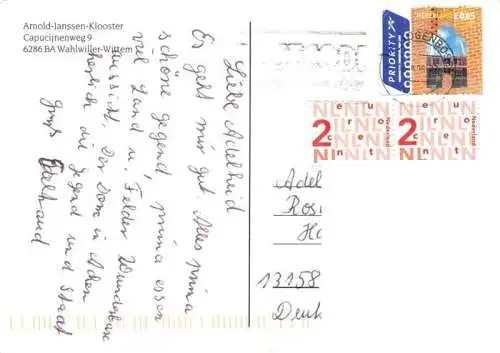 Arnold-Janssen-Klooster
Capucijnenweg 9
6286 BA Wahlwiller-Wittem
Liebe Adelheid
Es geht mir gut. Alles prima
schöne gegend, prima essen
viel Land u. Felder Wunderbare
aussicht. Der Dom in Achen
herlich die Jegend und Stadt
Gruß
PRIORITY
NEDERLAND € 0,65
2 euro cent Nederland
2 euro cent Nederland
Adel
Rosi
Ha
13158
Deut